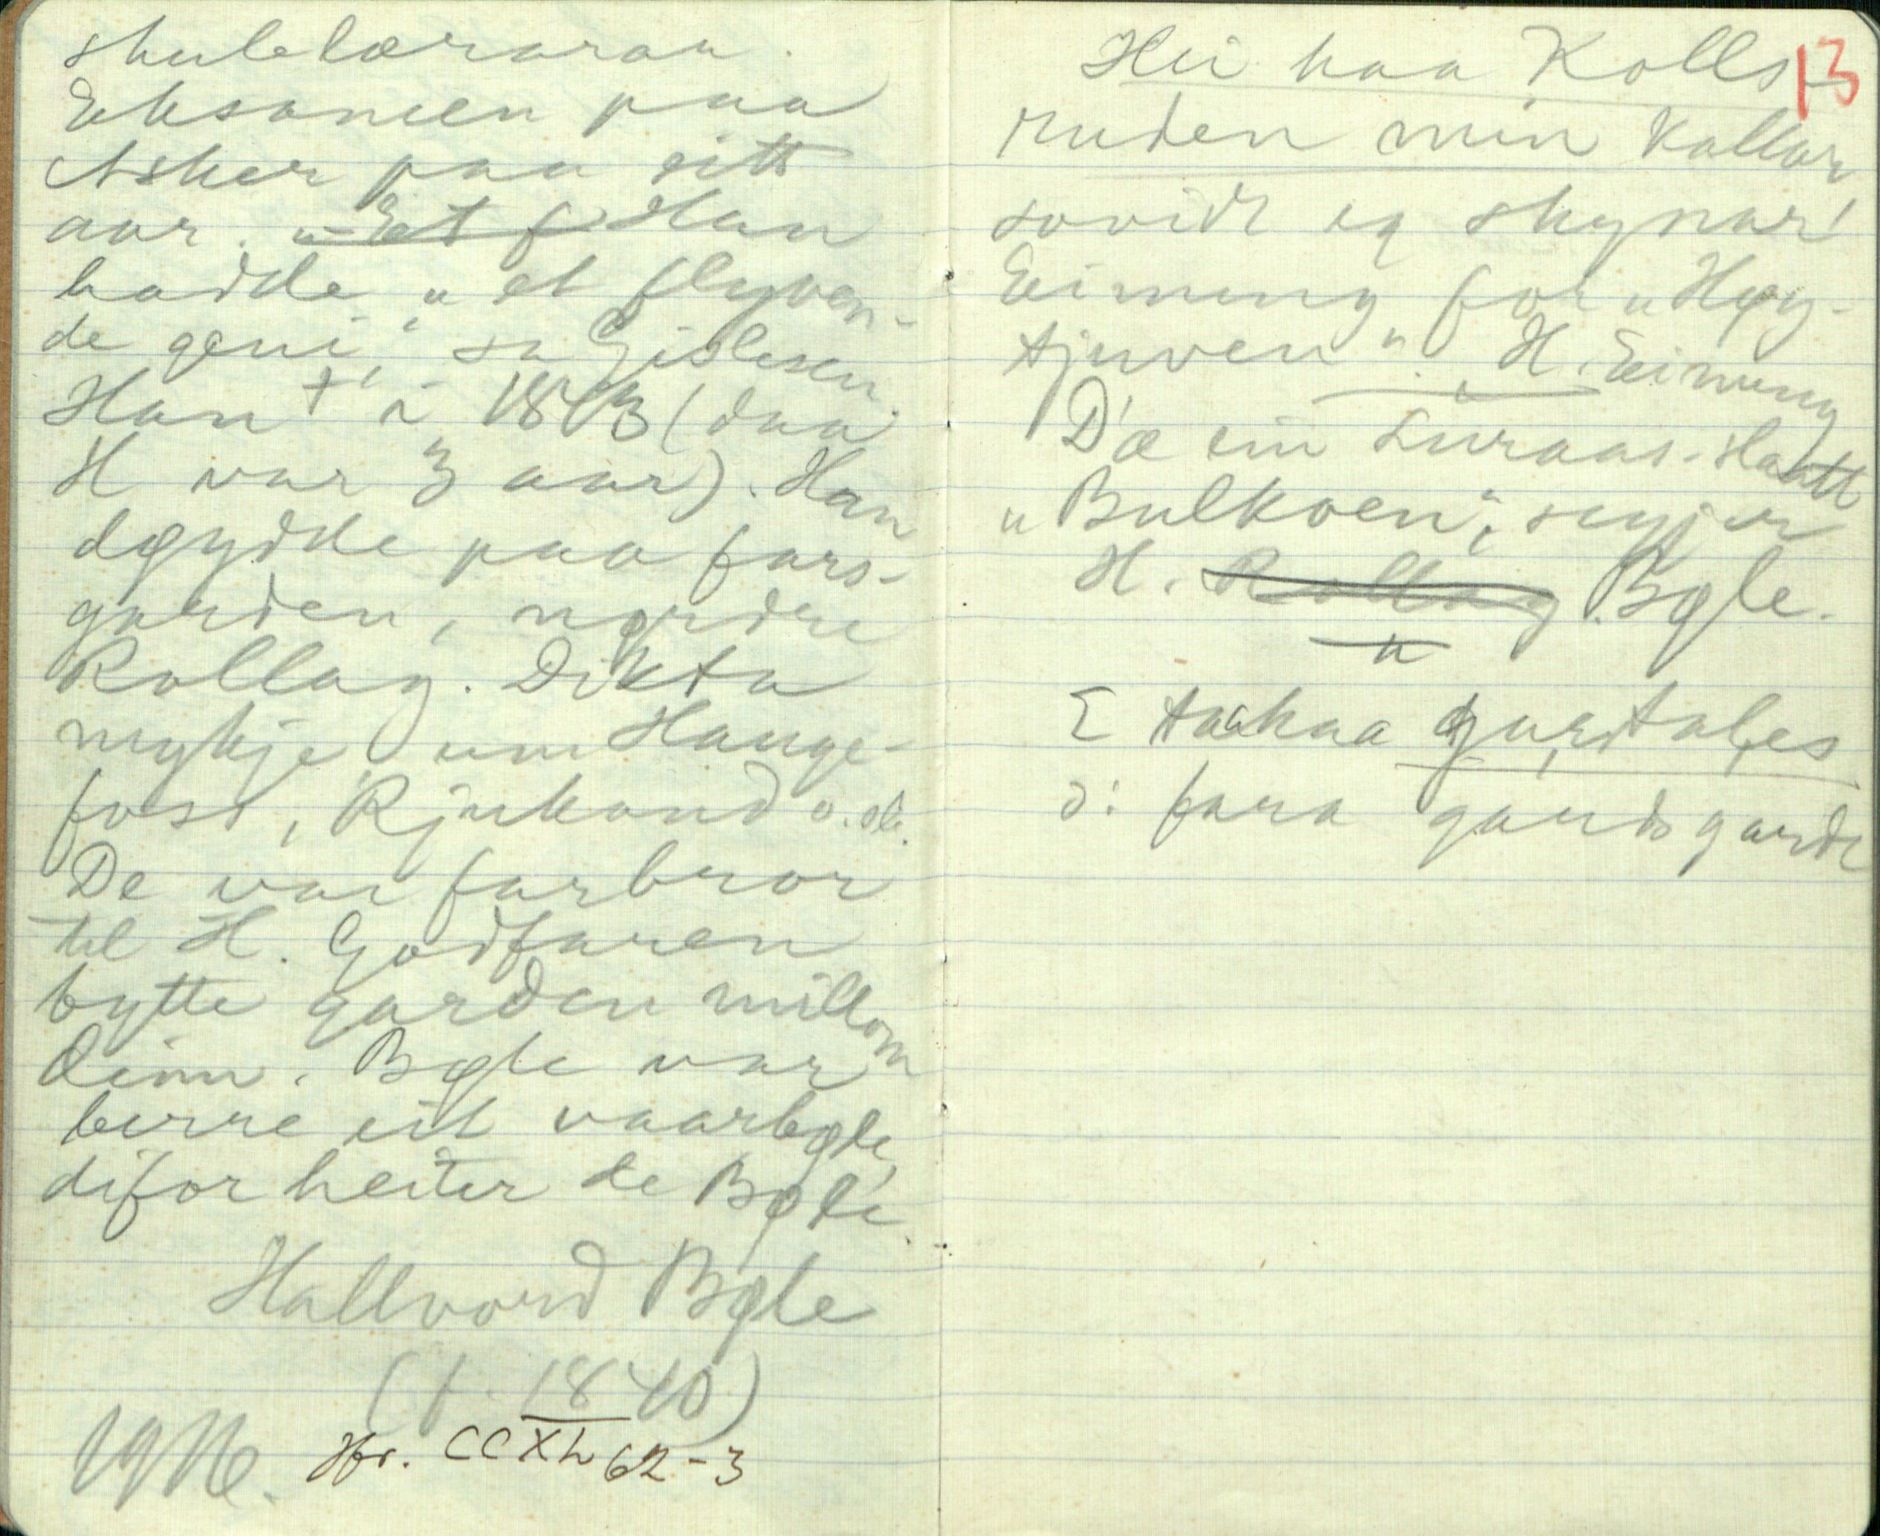 skulelærarar.
Eksamen paa
Asker paa eitt
aar. „Et f Han
hadde „et flyven-
de geni", sa Gislesen.
Han † i 1843 (daa
H var 3 aar). Han
døydde paa fars-
garden, nørdre
Rollag. Dikta
mykje um Hauge-
foss, Rjukand o.sl.
De var farbror
til H. Godfaren
bytte garden millom
deim. Bøle var
berre eit vaarbøle,
difor heiter de Bøle.
Hallvord Bøle
(f. 1840)
1916. Hfr. CCXL 62-3
13
Hei haa Kolls-
ruden min Kallar
sovidt eg skynar!
Eimung for „Høy-
tjuven". H. Eimung
D'æ ein Luraas-Hatt
„Bulkoen", seyjer
H. Rollag Bøle.
"
E taakaa gjurdtales
ɔ: fara gards garde